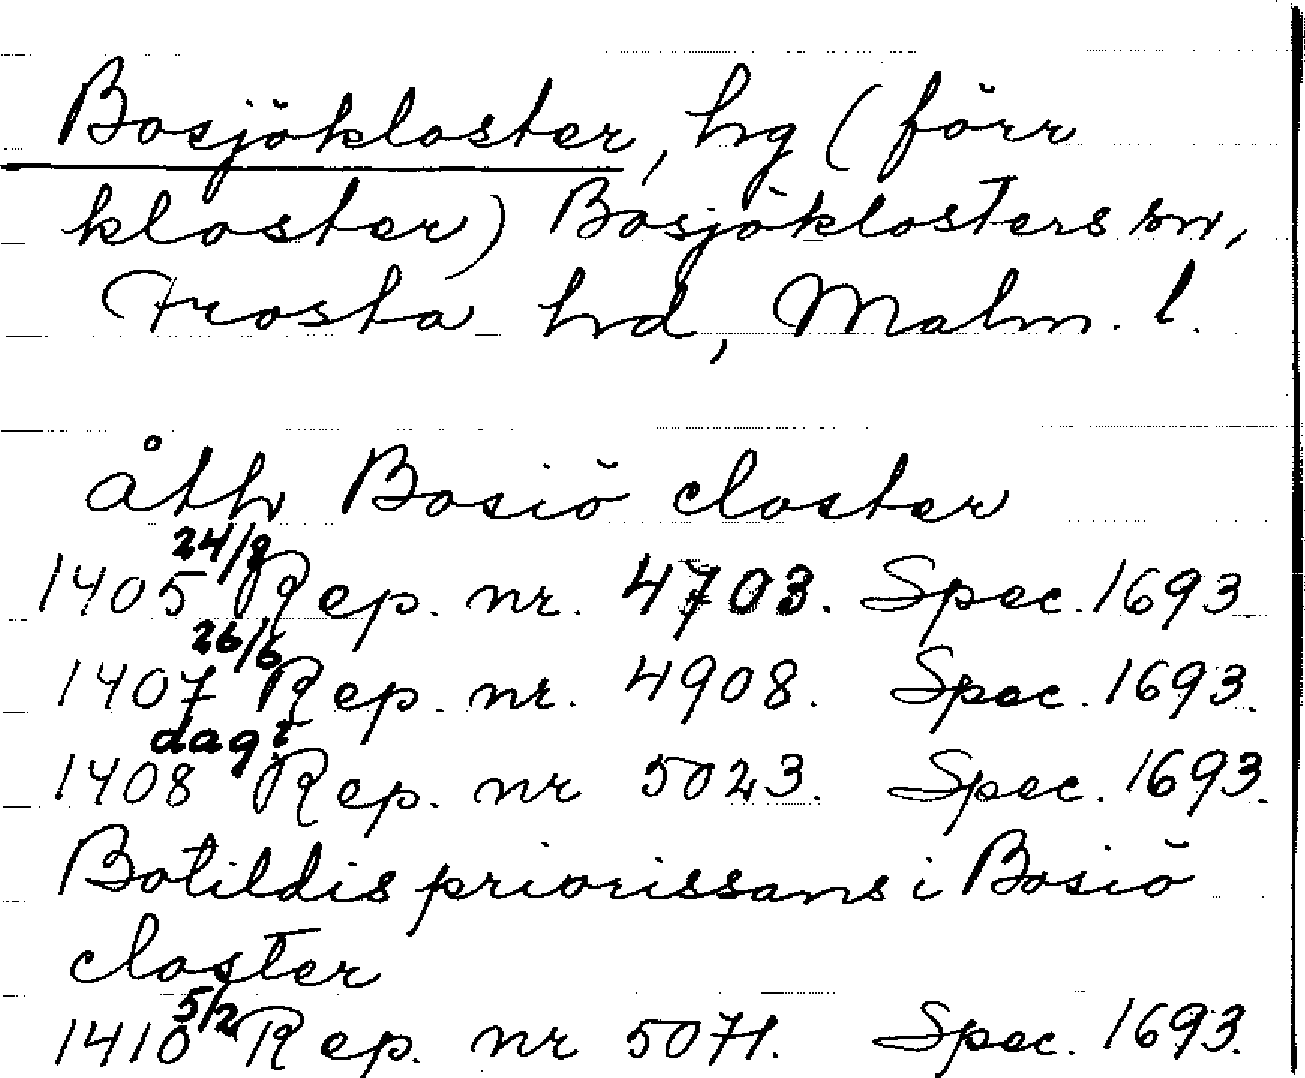 Bosjökloster, hg (förr
kloster) Bosjöklosters sn,
Frosta hd, Malm. l.
åth Bosiö closter
1405 24/8 Rep. nr. 4703. Spec. 1693
1407 26/6 Rep. nr. 4908. Spec. 1693.
1408 dag? Rep. nr 5023. Spec. 1693.
Botildis priorissans i Bosiö
closter
1410 5/2 Rep. nr 5071. Spec. 1693.